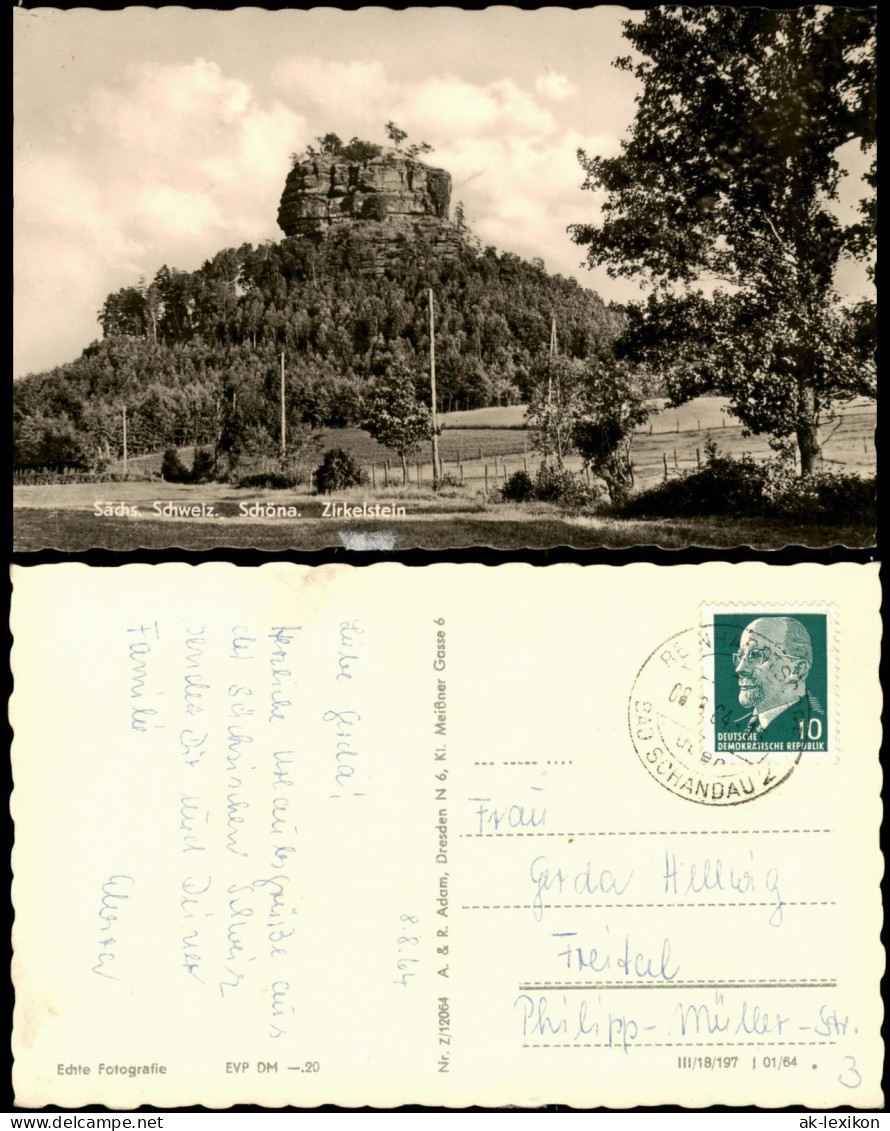 Sächs. Schweiz. Schöna. Zirkelstein
8.8.64
Liebe Gerda!
Herzliche Urlaubsgrüße aus
der Sächsischen Schweiz
sendet Dir und Deiner
Familie
Echte Fotografie
EVP DM —.20
Nr. Z/12064 A. & R. Adam, Dresden N 6, Kl. Meißner Gasse 6
BAD SCHANDAU 2
DEUTSCHE
DEMOKRATISCHE REPUBLIK
10
Frau
Gerda Hellwig
Freital
Philipp-Müller-Str.
3
III/18/197 J 01/64
ak-lexikon